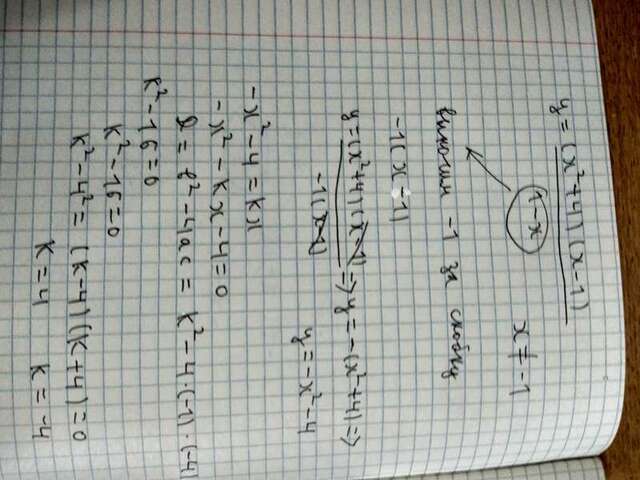 y = (x²+4)(x-1)
(1-x) x ≠ -1
выносим -1 за скобку
-1(x-1)
y = (x²+4)(x-1) => y = -(x²+4) =>
-1(x-1) y = -x²-4
-x²-4 = kx
-x²-kx-4=0
D = b²-4ac = k²-4·(-1)·(-4)
k²-16=0
k²-16=0
k²-4² = (k-4)(k+4)=0
k=4 k=-4